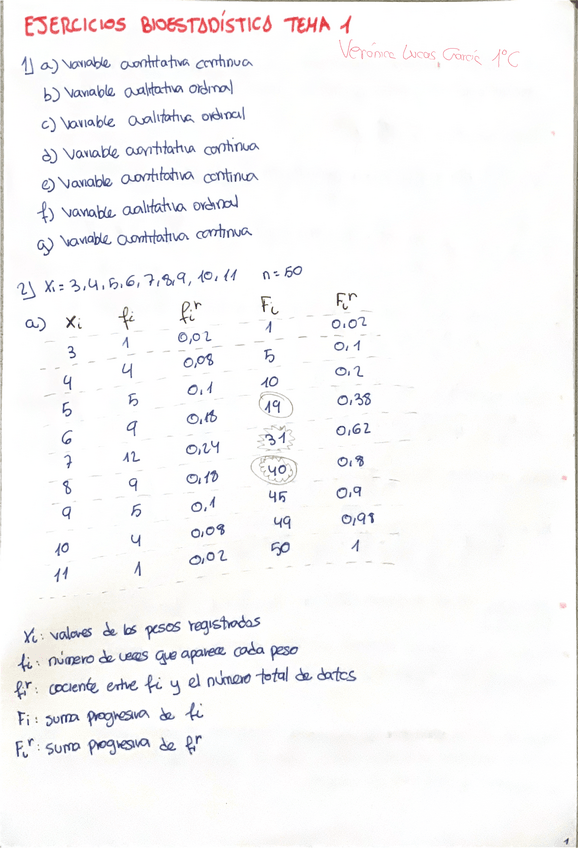 EJERCICIOS BIOESTADÍSTICA TEMA 1
Verónica Lucas García 1°C
1) a) Variable cuantitativa continua
b) Variable cualitativa ordinal
c) Variable cualitativa ordinal
d) Variable cuantitativa continua
e) Variable cuantitativa continua
f) Variable cualitativa ordinal
g) Variable cuantitativa continua
2) Xi = 3,4,5,6,7,8,9,10,11 n=50
a) Xi fi fiʳ Fi Fiʳ
3 1 0,02 1 0,02
4 4 0,08 5 0,1
5 5 0,1 10 0,2
6 9 0,18 19 0,38
7 12 0,24 31 0,62
8 9 0,18 40 0,8
9 5 0,1 45 0,9
10 4 0,08 49 0,98
11 1 0,02 50 1
Xi: valores de los pesos registrados
fi: número de veces que aparece cada peso
fiʳ: cociente entre fi y el número total de datos
Fi: suma progresiva de fi
Fiʳ: suma progresiva de fiʳ
1